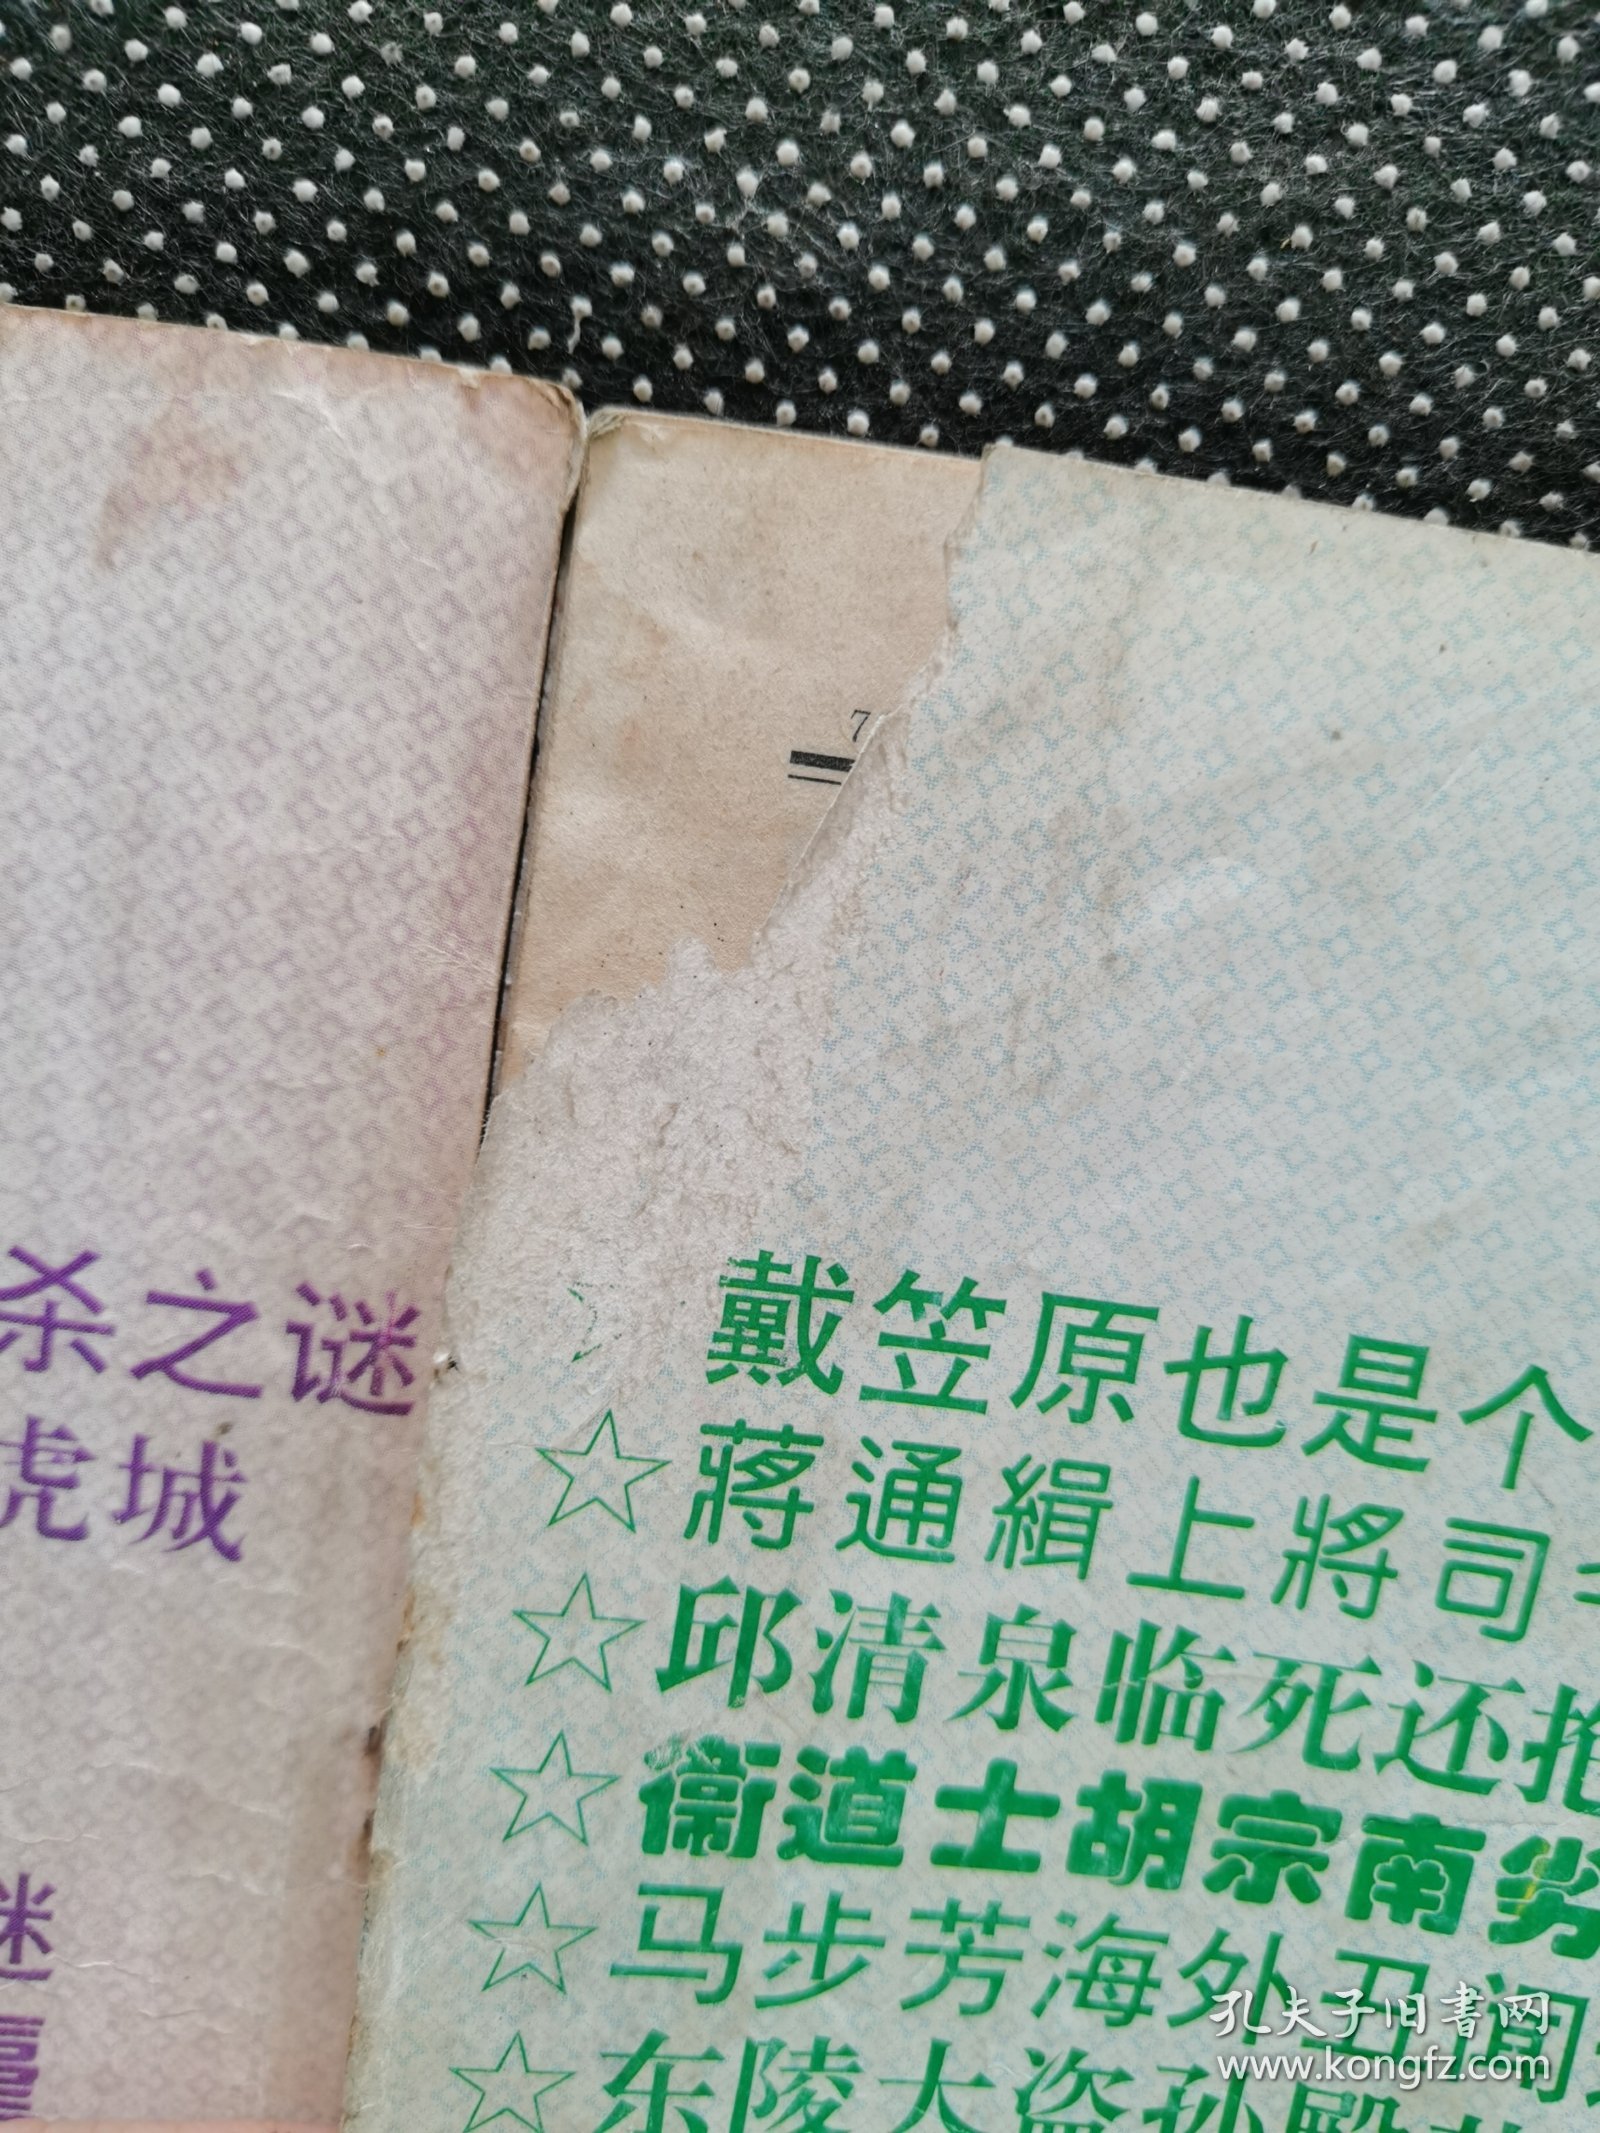 杀之谜
虎城
谜
7
戴笠原也是个
☆蔣通緝上將司
☆邱清泉临死还抢
☆衞道士胡宗南劣
☆马步芳海外丑闻
☆东陵大盗孙殿英
孔夫子旧書网
www.kongfz.com